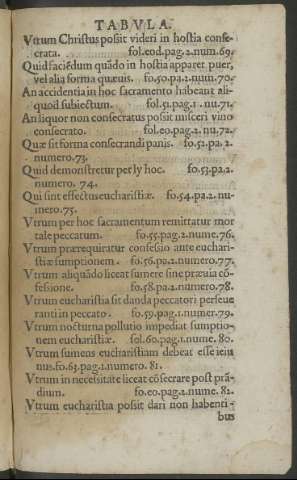 TABVLA.
Vtrum Christus possit videri in hostia conse-
crata. fol.eod.pag.2.num.69.
Quid faciẽdum quãdo in hostia apparet puer,
vel alia forma quæuis. fo.50.pa.2.num.70.
An accidentia in hoc sacramento habeant ali-
quod subiectum. fol.51.pag.1.nu.71.
An liquor non consecratus possit misceri vino
consecrato. fol.eo.pag.2.nu.72.
Quæ sit forma consecrandi panis. fo.52.pa.2.
numero.73.
Quid demonstretur per ly hoc. fo.53.pa.2.
numero. 74.
Qui sint effectus eucharistiæ. fo.54.pa.2.nu-
mero.75.
Vtrum per hoc sacramentum remittatur mor
tale peccatum. fo.55.pag.2.nume.76.
Vtrum prærequiratur confessio ante euchari-
stiæ sumptionem. fo.56.pa.2.numero.77.
Vtrum aliquãdo liceat sumere sine præuia cõ-
fessione. fo.58.pa.2.numero.78.
Vtrum eucharistia sit danda peccatori perseue
ranti in peccato. fo.59.pag.1.numer.79.
Vtrum nocturna pollutio impediat sumptio-
nem eucharistiæ. fol.60.pag.1.nume. 80.
Vtrum sumens eucharistiam debeat esse ieiu
nus.fo.63.pag.1.numero. 81.
Vtrum in necessitate liceat cõsecrare post prã-
dium. fo.eo.pag.2.nume. 82.
Vtrum eucharistia possit dari non habenti-
bus